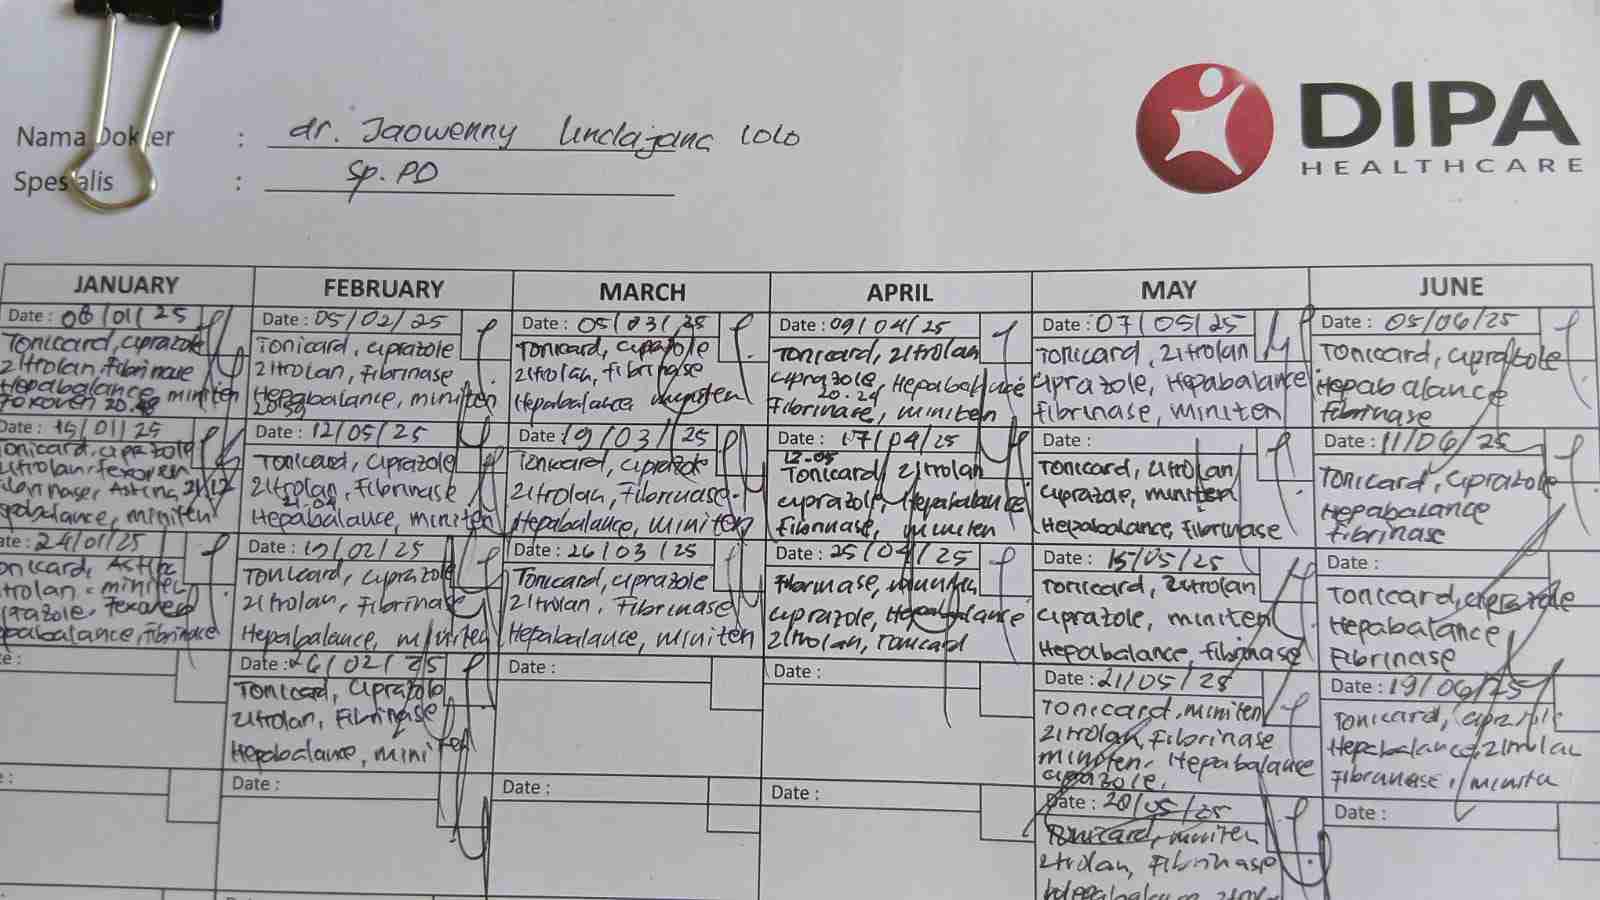 DIPA
HEALTHCARE
Nama Dokter : dr. Jaowenny Lolo
Spesialis : Sp. PD
JANUARY
Date : 08/01/25
Tonicard, Ciprazole
Zitrolan, Fibrinase
Hepabalance, miniten
Date : 15/01/25
onicard, Ciprazole
Fibrinase, miniten
24/01/25
onicard,
trolan, miniten
prazole,
pabalance, Fibrinase
FEBRUARY
Date : 05/02/25
Tonicard, Ciprazole
Zitrolan, Fibrinase
Hepabalance, miniten
20.59
Date : 12/05/25
Tonicard, Ciprazole
Zitrolan, Fibrinase
21.04
Hepabalance, miniten
Date : 19/02/25
Tonicard, Ciprazole
Zitrolan, Fibrinase
Hepabalance, miniten
Date : 26/02/25
Tonicard, Ciprazole
Zitrolan, Fibrinase
Hepabalance, miniten
Date :
MARCH
Date : 05/03/25
Tonicard, Ciprazole
Zitrolan, Fibrinase
Hepabalance, miniten
Date : 19/03/25
Tonicard, Ciprazole
Zitrolan, Fibrinase.
Hepabalance, miniten
Date : 26/03/25
Tonicard, Ciprazole
Zitrolan, Fibrinase
Hepabalance, miniten
Date :
Date :
APRIL
Date : 09/04/25
Tonicard, Zitrolan
Ciprazole, Hepabalance
20.24
Fibrinase, miniten
Date : 17/04/25
Tonicard, Zitrolan
Ciprazole, Hepabalance
Fibrinase, miniten
Date : 25/04/25
Fibrinase, miniten
Ciprazole, Hepabalance
Zitrolan, Tonicard
Date :
Date :
MAY
Date : 07/05/25
Tonicard, Zitrolan
Ciprazole, Hepabalance
Fibrinase, miniten
Date :
Tonicard, Zitrolan
Ciprazole, miniten
Hepabalance, Fibrinase
Date : 15/05/25
Tonicard, Zitrolan
Ciprazole, miniten
Hepabalance, Fibrinase
Date : 21/05/25
Tonicard, miniten
Zitrolan, Fibrinase
miniten, Hepabalance
Ciprazole.
Date : 28/05/25
Tonicard, miniten
Zitrolan, Fibrinase
JUNE
Date : 05/06/25
Tonicard, Ciprazole
Hepabalance
Fibrinase
Date : 11/06/25
Tonicard, Ciprazole
Hepabalance
Fibrinase
Date :
Tonicard, Ciprazole
Hepabalance
Fibrinase
Date : 19/06/25
Tonicard,
Hepabalance, Zitrolan
Fibrinase, miniten
Date :